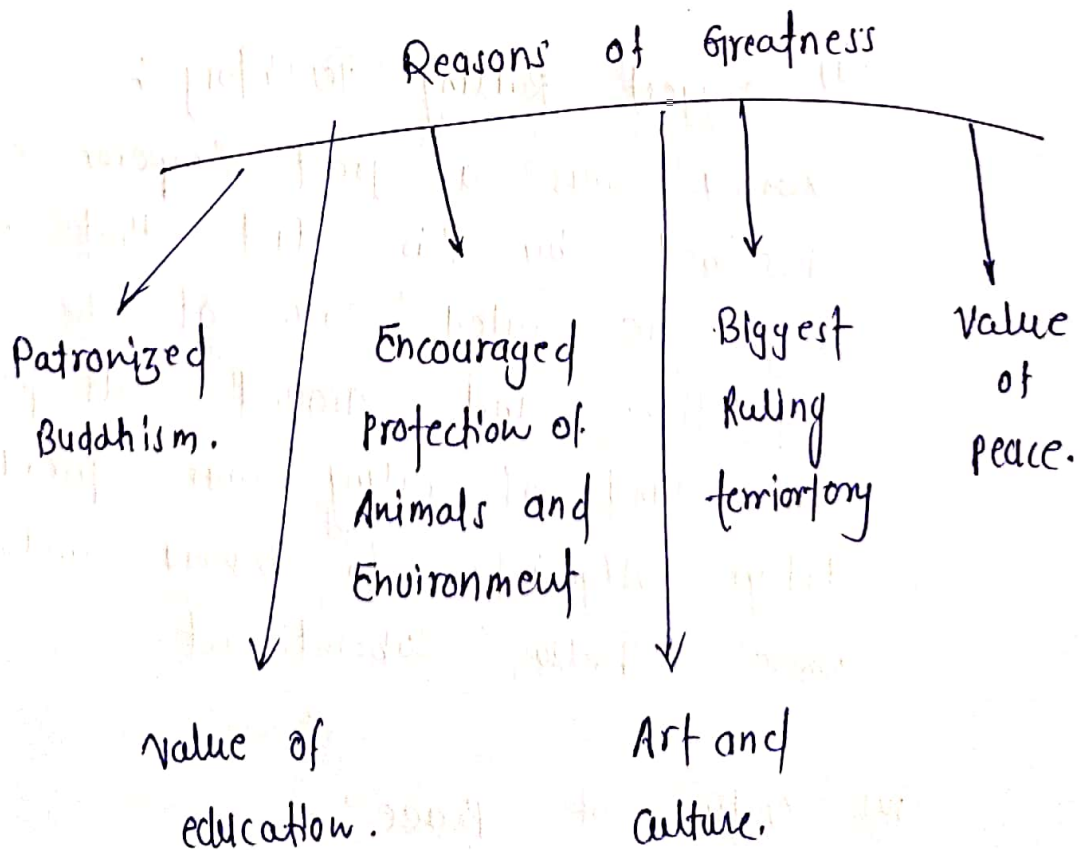 Reasons of Greatness
Patronized
Buddhism.
Encouraged
Protection of
Animals and
Environment
Biggest
Ruling
terriortory
Value
of
peace.
Value of
education.
Art and
culture.